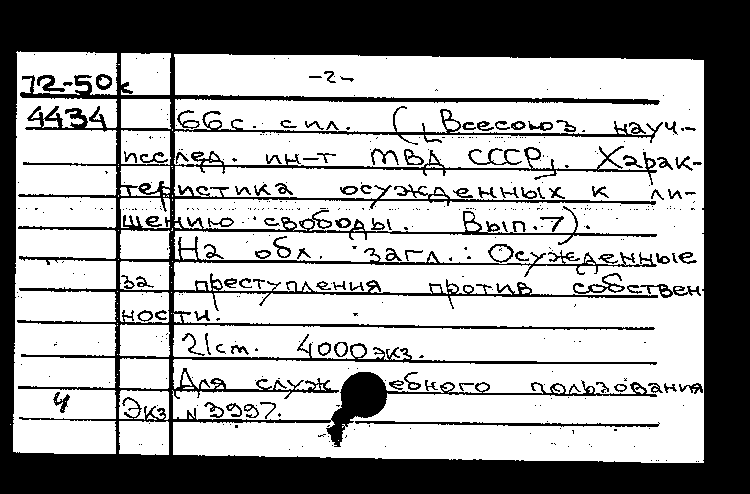 -2-
72-50к
4434 66с. с ил. ([Всесоюз. науч.-
исслед. ин-т МВД СССР]. Харак-
теристика осужденных к ли-
шению свободы. Вып. 7).
На обл. загл.: Осужденные
за преступления против собствен-
ности.
21см. 4000 экз.
Для служебного пользования
Ч Экз. N 3997.